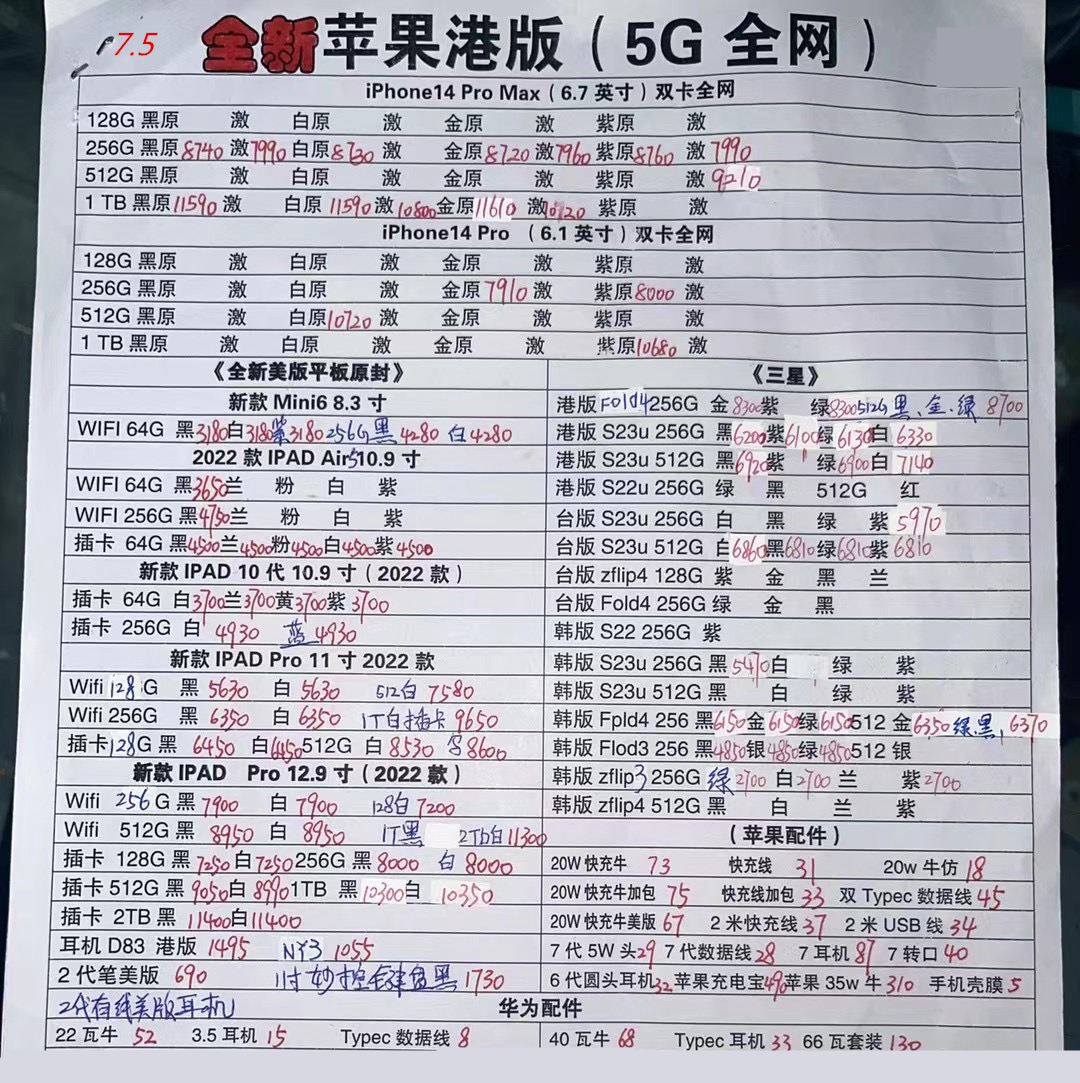 7.5
全新苹果港版（5G 全网）
iPhone14 Pro Max（6.7 英寸）双卡全网
128G 黑原 激 白原 激 金原 激 紫原 激
256G 黑原8740 激7990 白原8730 激 金原8720 激7960 紫原8760 激 7990
512G 黑原 激 白原 激 金原 激 紫原 激 9210
1 TB 黑原11590 激 白原 11590 激10800 金原11610 激 紫原 激
iPhone14 Pro （6.1 英寸）双卡全网
128G 黑原 激 白原 激 金原 激 紫原 激
256G 黑原 激 白原 激 金原7910 激 紫原8000 激
512G 黑原 激 白原10720 激 金原 激 紫原 激
1 TB 黑原 激 白原 激 金原 激 紫原10680 激
《全新美版平板原封》
新款 Mini6 8.3 寸
WIFI 64G 黑3180白3180紫3180 256G 黑 4280 白4280
2022 款 IPAD Air5 10.9 寸
WIFI 64G 黑3650兰 粉 白 紫
WIFI 256G 黑4750兰 粉 白 紫
插卡 64G 黑4500兰4500粉4500白4500紫4500
新款 IPAD 10 代 10.9 寸（2022 款）
插卡 64G 白3700兰3700黄3700紫3700
插卡 256G 白 4930 蓝 4930
新款 IPAD Pro 11 寸 2022 款
Wifi 128 G 黑 5630 白 5630 512白 7580
Wifi 256G 黑 6350 白 6350 1T白插卡 9650
插卡128G 黑 6450 白6450 512G 白 8530 8600
新款 IPAD Pro 12.9 寸（2022 款）
Wifi 256 G 黑 7900 白 7900 128白 7200
Wifi 512G 黑 8950 白 8950 1T黑 2Tb白11300
插卡 128G 黑 7250 白7250 256G 黑 8000 白 8000
插卡 512G 黑 9050白 8990 1TB 黑 10300白 10350
插卡 2TB 黑 11400白11400
耳机 D83 港版 1495 NY3 1055
2 代笔美版 690 11寸妙控键盘黑 1730
2代有线美版耳机
《三星》
港版 Fold4 256G 金 8300紫 绿8300 512G 黑、金、绿 8700
港版 S23u 256G 黑6200紫6100绿6130白 6330
港版 S23u 512G 黑6920紫 绿6900白 7140
港版 S22u 256G 绿 黑 512G 红
台版 S23u 256G 白 黑 绿 紫5970
台版 S23u 512G 白6860黑6810绿6810紫 6810
台版 zflip4 128G 紫 金 黑 兰
台版 Fold4 256G 绿 金 黑
韩版 S22 256G 紫
韩版 S23u 256G 黑 5470白 绿 紫
韩版 S23u 512G 黑 白 绿 紫
韩版 Fpld4 256 黑6150金6150绿6150 512 金6350绿.黑, 6370
韩版 Flod3 256 黑4850银4850绿4850 512 银
韩版 zflip3 256G 绿2700 白2700 兰 紫2700
韩版 zflip4 512G 黑 白 兰 紫
（苹果配件）
20W 快充牛 73 快充线 31 20w 牛仿 18
20W 快充牛加包 75 快充线加包 33 双 Typec 数据线 45
20W 快充牛美版 67 2 米快充线 37 2 米 USB 线 34
7 代 5W 头29 7 代数据线28 7 耳机 87 7 转口 40
6 代圆头耳机32 苹果充电宝490苹果 35w 牛310 手机壳膜 5
华为配件
22 瓦牛 52 3.5 耳机 15 Typec 数据线 8 40 瓦牛 68 Typec 耳机 33 66 瓦套装 130